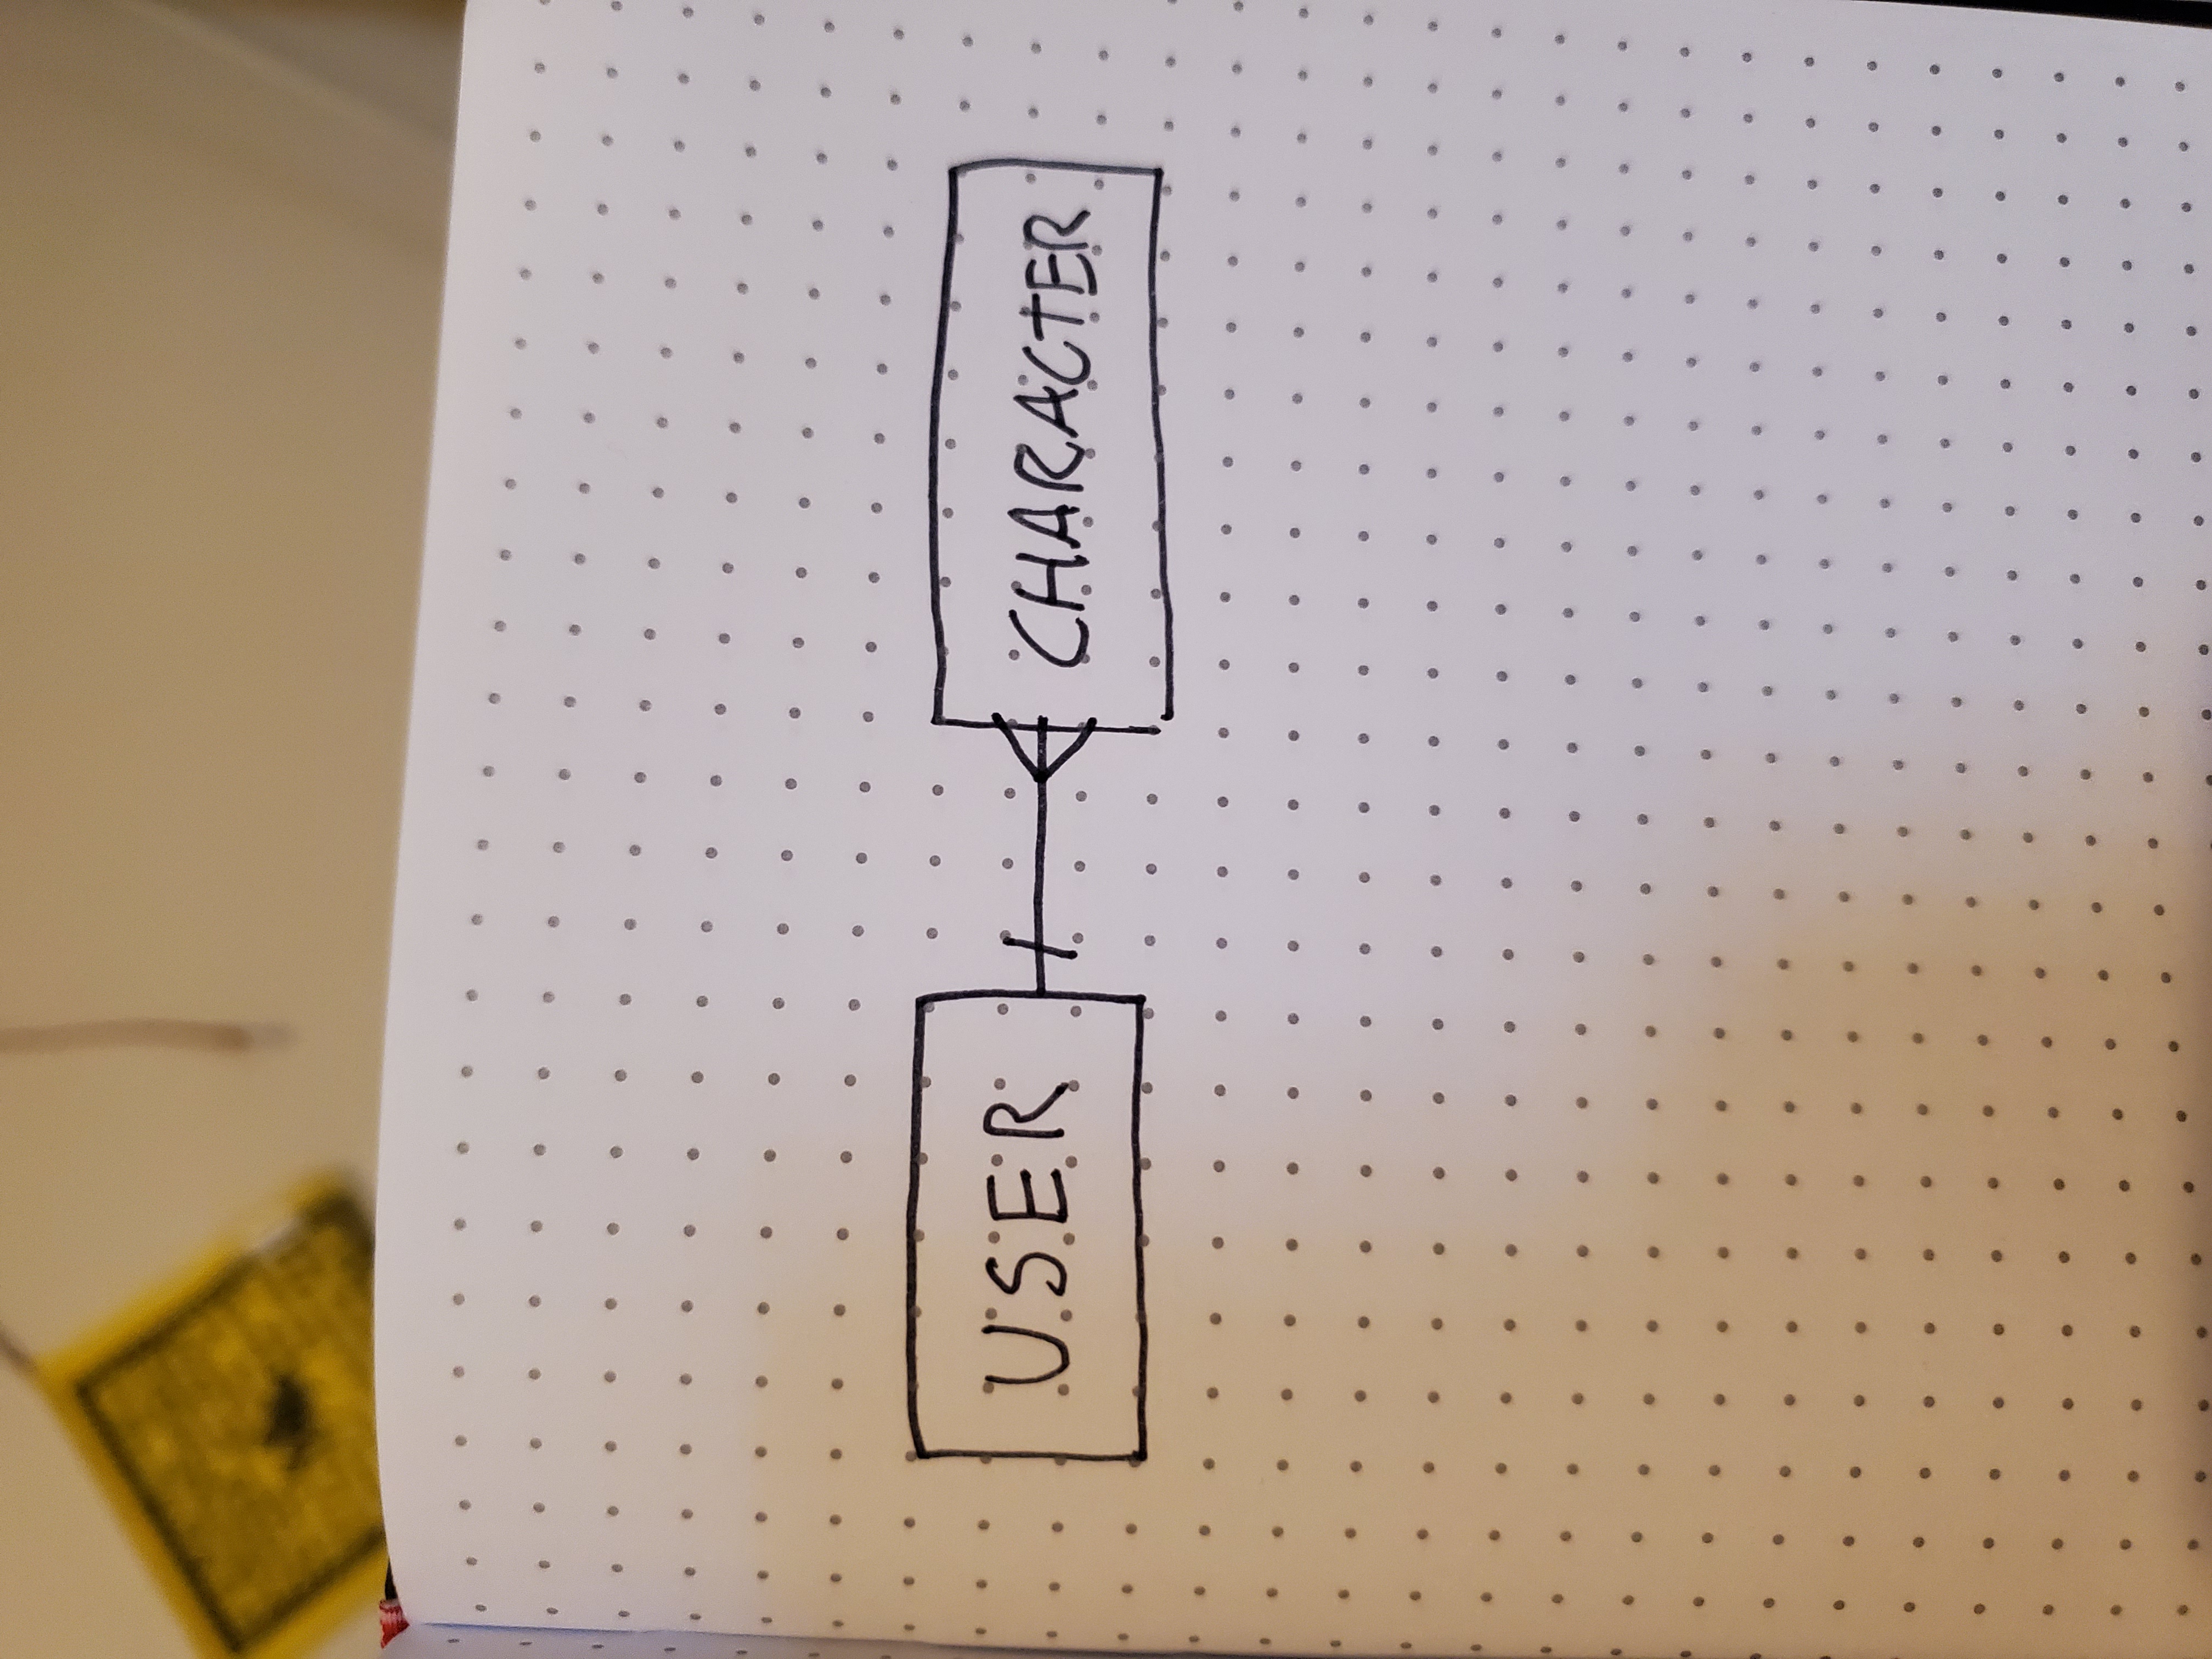 USER
CHARACTER